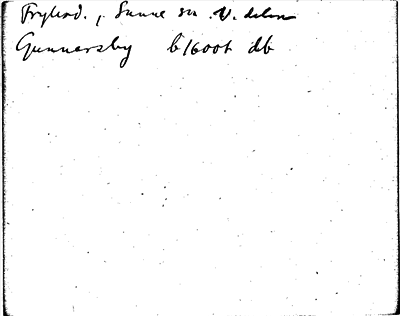 Fryksd., Sunne sn V. delen
Gunnersby b1600t db